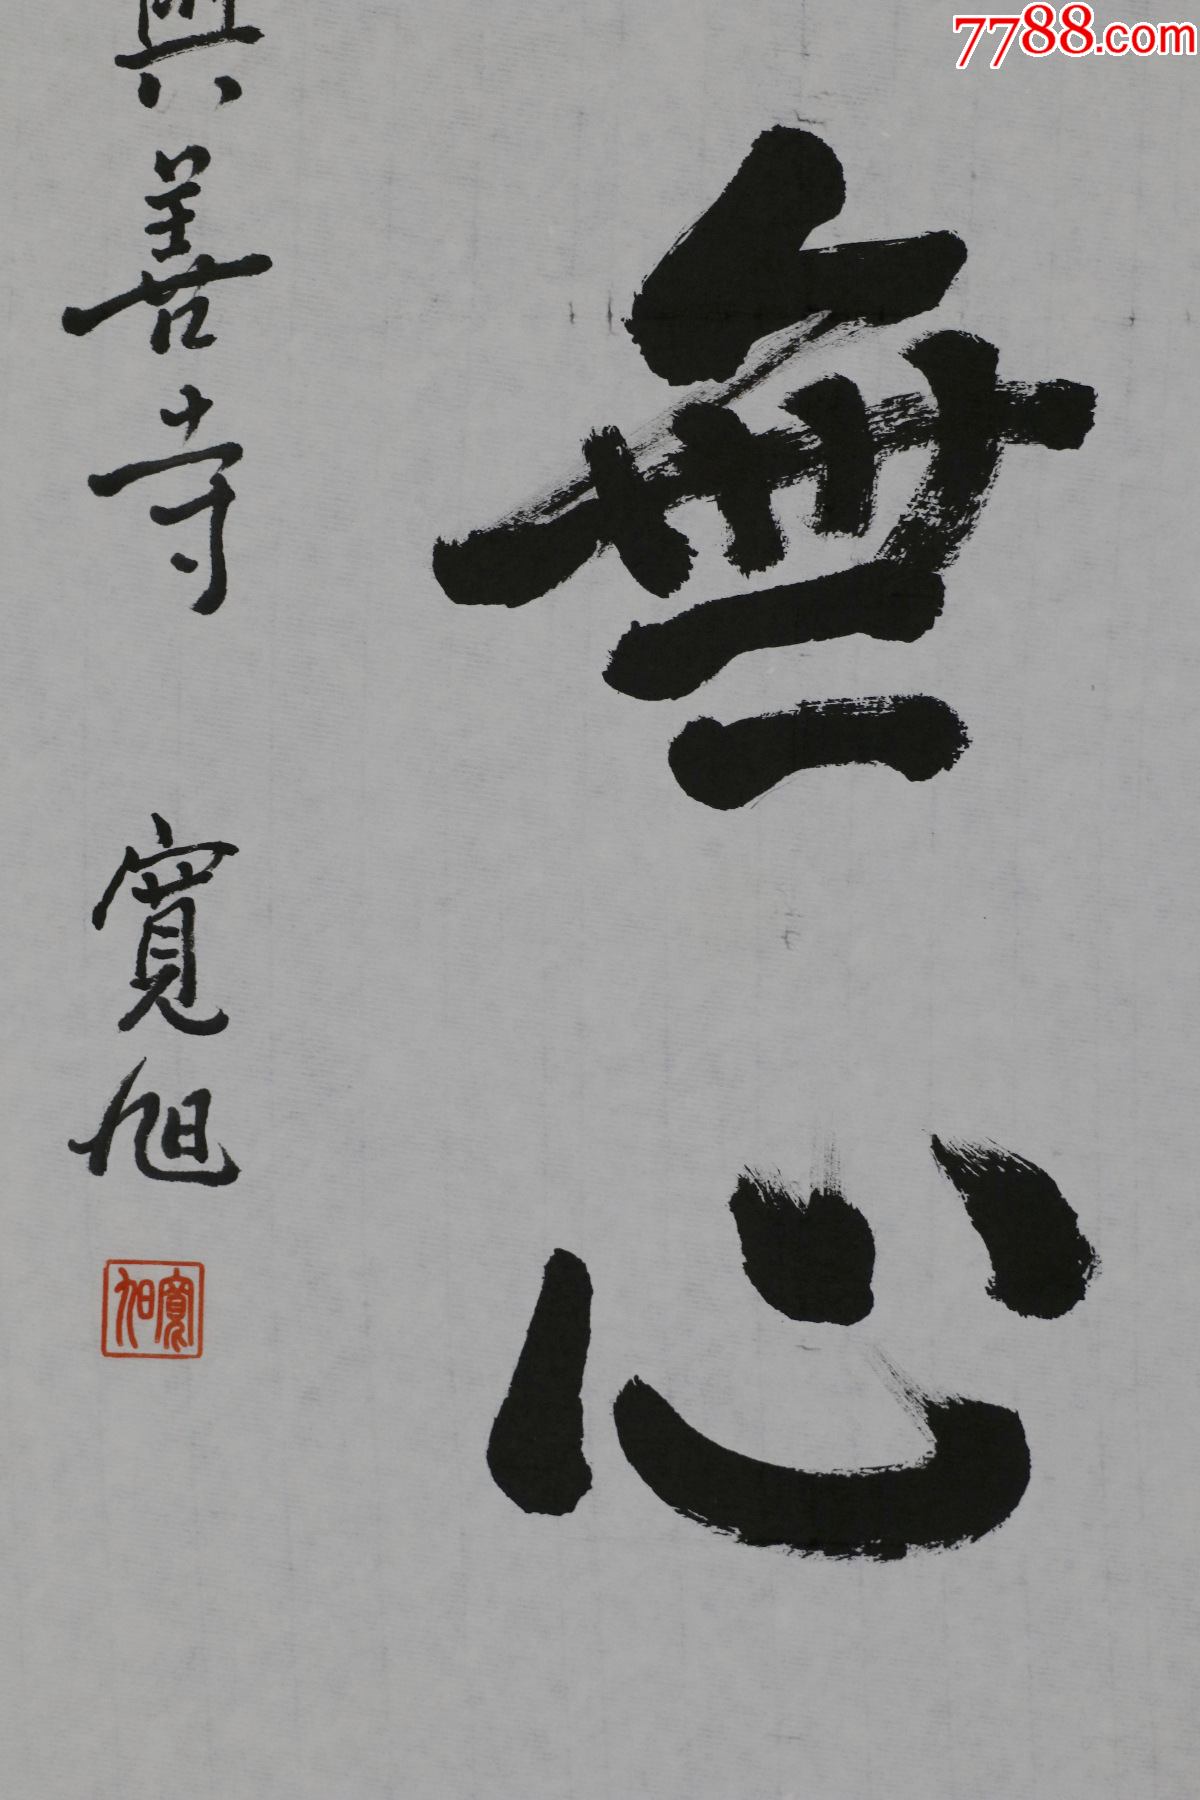 7788.com
無心
興善寺 寬旭
寬旭